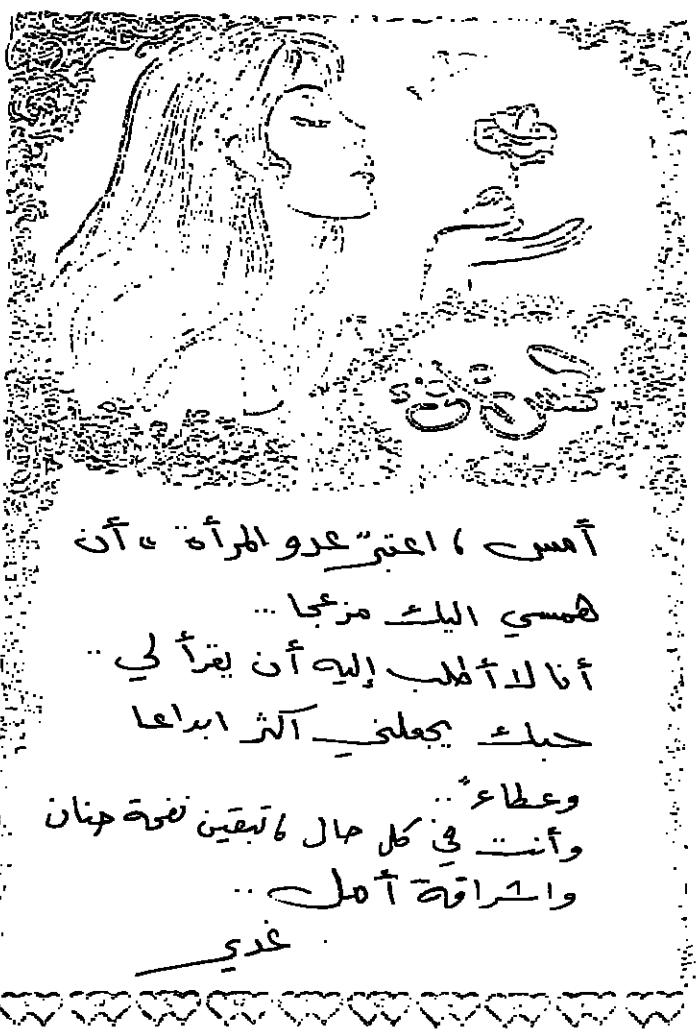 أمس ، اعتبر "عدو المرأة" أن
همسي اليك مزعجا ..
أنا لا أطلب إليه أن يقرأ لي ..
حبك يجعلني أكثر ابداعا
وعطاءً ..
وأنت في كل حال ، تبقين نفحة حنان
واشراقة أمل ..
غدي